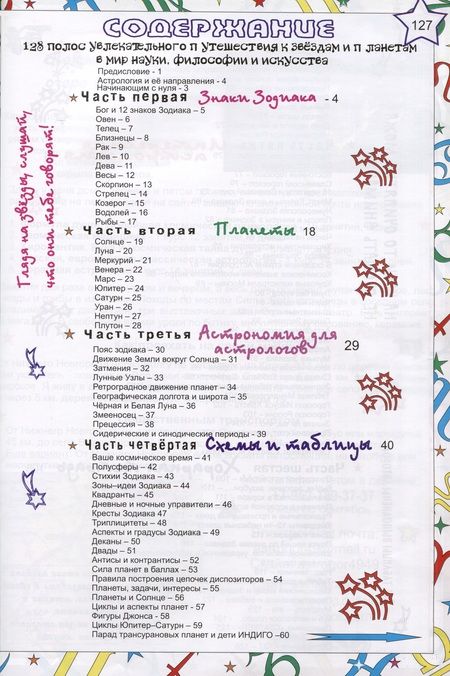 127
СОДЕРЖАНИЕ
128 полос увлекательного путешествия к звёздам и планетам
в мир науки, философии и искусства
Глядя на звёзды, слушай,
что они тебе говорят!
Предисловие - 1
Астрология и её направления - 4
Начинающим с нуля - 3
Часть первая Знаки Зодиака - 4
Бог и 12 знаков Зодиака – 5
Овен – 6
Телец – 7
Близнецы – 8
Рак – 9
Лев – 10
Дева – 11
Весы – 12
Скорпион – 13
Стрелец – 14
Козерог – 15
Водолей – 16
Рыбы – 17
Часть вторая Планеты 18
Солнце – 19
Луна – 20
Меркурий – 21
Венера – 22
Марс – 23
Юпитер – 24
Сатурн – 25
Уран – 26
Нептун – 27
Плутон – 28
Часть третья Астрономия для
астрологов 29
Пояс зодиака – 30
Движение Земли вокруг Солнца – 31
Затмения – 32
Лунные Узлы – 33
Ретроградное движение планет – 34
Географическая долгота и широта – 35
Чёрная и Белая Луна – 36
Змееносец – 37
Прецессия – 38
Сидерические и синодические периоды - 39
Часть четвёртая Схемы и таблицы 40
Ваше космическое время – 41
Полусферы – 42
Стихии Зодиака – 43
Зоны–идеи Зодиака – 44
Квадранты – 45
Дневные и ночные управители – 46
Кресты Зодиака - 47
Триплицитеты – 48
Аспекты и градусы Зодиака – 49
Деканы – 50
Двады – 51
Антисы и контрантисы – 52
Сила планет в баллах – 53
Правила построения цепочек диспозиторов – 54
Планеты, задачи, интересы – 55
Планеты и Солнце – 56
Циклы и аспекты планет – 57
Фигуры Джонса - 58
Циклы Юпитер–Сатурн – 59
Парад трансурановых планет и дети ИНДИГО –60